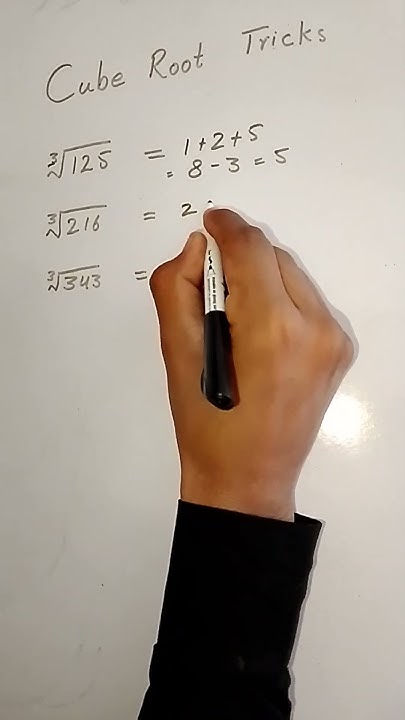 Cube Root Tricks
∛125 = 1+2+5
= 8-3 = 5
∛216 = 2
∛343 =